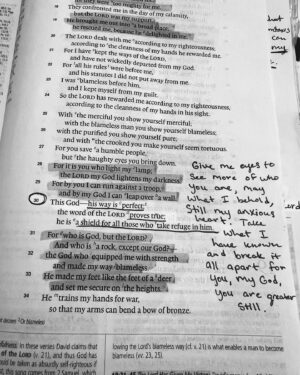 They confronted me in the day of my calamity,
but the LORD was my support.
He brought me out into a broad place;
he rescued me, because he delighted in me.
The LORD dealt with me according to my righteousness;
according to the cleanness of my hands he rewarded me.
For I have kept the ways of the LORD,
and have not wickedly departed from my God.
For all his rules were before me,
and his statutes I did not put away from me.
I was blameless before him,
and I kept myself from my guilt.
So the LORD has rewarded me according to my righteousness,
according to the cleanness of my hands in his sight.
With the merciful you show yourself merciful;
with the blameless man you show yourself blameless;
with the purified you show yourself pure;
and with the crooked you make yourself seem tortuous.
For you save a humble people,
but the haughty eyes you bring down.
28 For it is you who light my lamp;
the LORD my God lightens my darkness.
29 For by you I can run against a troop,
and by my God I can leap over a wall.
30 This God—his way is perfect;
the word of the LORD proves true;
he is a shield for all those who take refuge in him.
31 For who is God, but the LORD?
And who is a rock, except our God?—
32 the God who equipped me with strength
and made my way blameless.
33 He made my feet like the feet of a deer
and set me secure on the heights.
34 He trains my hands for war,
so that my arms can bend a bow of bronze.
Give me eyes to
see more of who
you are, may
what I behold,
Still my anxious
heart. Take
what I
have known
and break it
all apart for
you, my God,
you are greater
still.
Or blameless
In these verses David claims that
of the LORD (v. 21), and thus God has
lowing the Lord's blameless way (cf. v. 21) is what enables a man to become
blameless (vv. 23, 25).